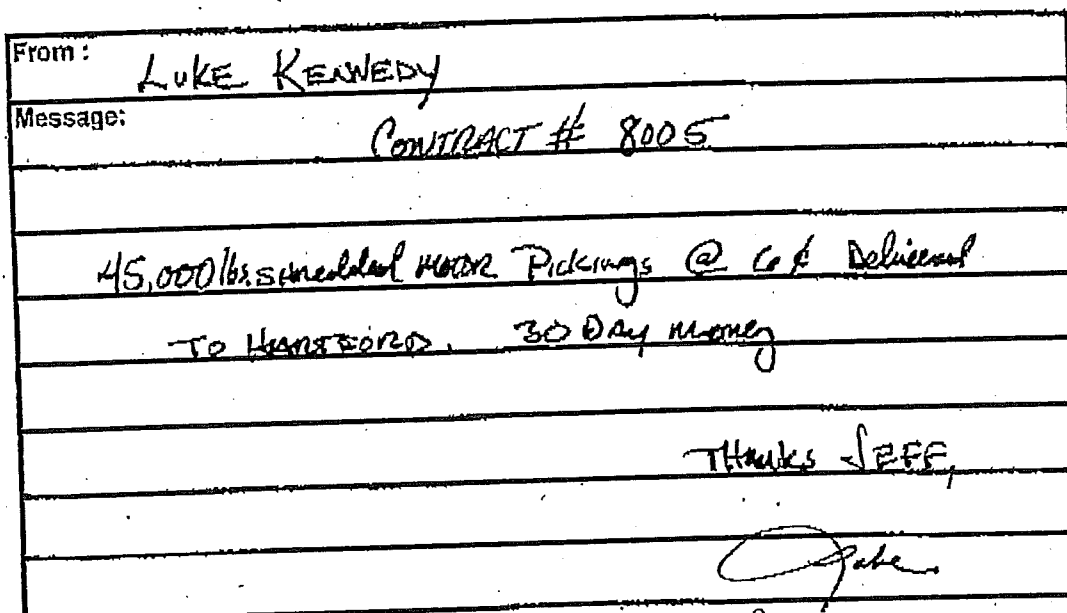 From :
LUKE KENNEDY
Message:
CONTRACT # 8005
45,000 lbs. SHREDDED MOTOR Pickings @ 6 ¢ Delivered
TO HARTFORD. 30 DAY Money
THANKS JEFF,